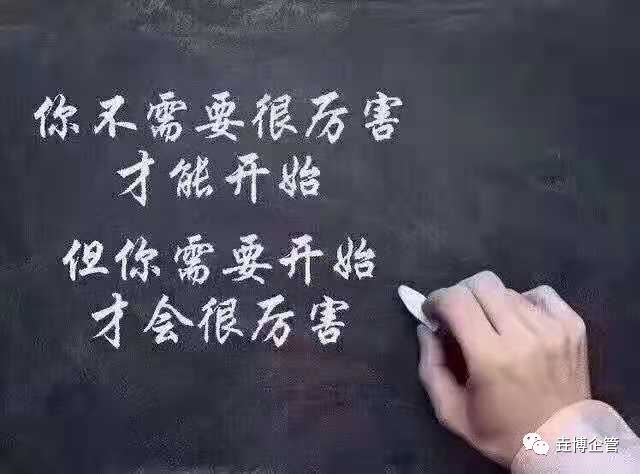 你不需要很厉害
才能开始
但你需要开始
才会很厉害
垚博企管